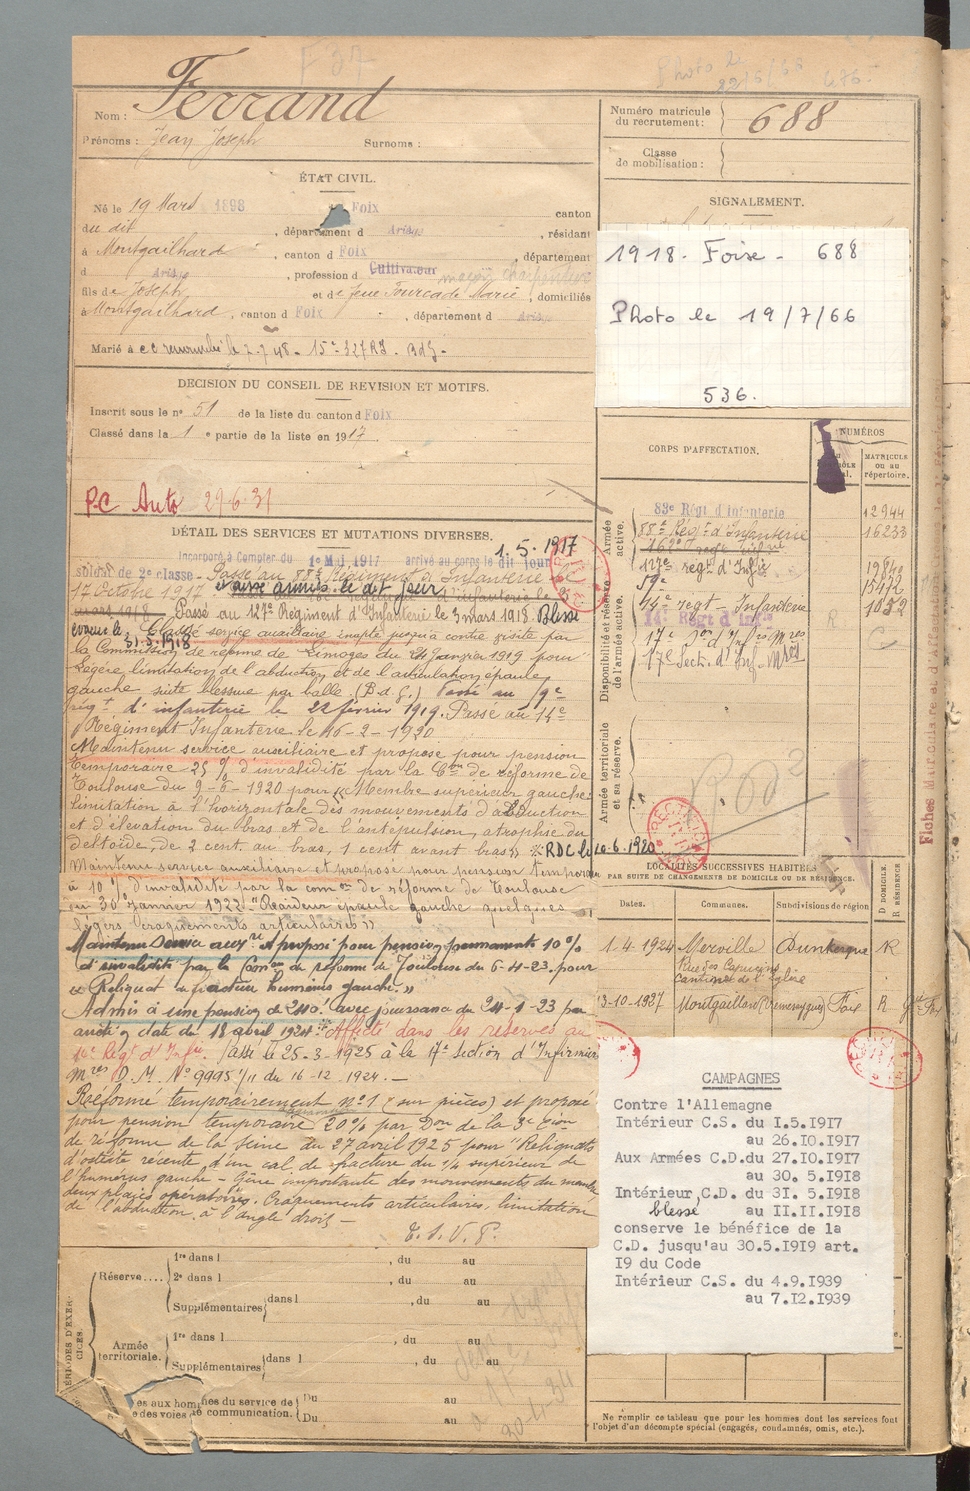 F 37
Photo le
22/6/66
Ferrand
Nom :
Prénoms : Jean Joseph Surnoms :
Numéro matricule
du recrutement : 688
Classe
de mobilisation :
ÉTAT CIVIL.
Né le 19 Mars 1898, à Foix canton
du dit, département d Ariège, résidant
à Montgailhard, canton d Foix, département
d Ariège, profession d Cultivateur maçon charpentier
fils de Joseph et de feue Fourcade Marie, domiciliés
à Montgailhard, canton d Foix, département d Ariège
Marié à
DECISION DU CONSEIL DE REVISION ET MOTIFS.
Inscrit sous le no 51 de la liste du canton d Foix
Classé dans la 1 e partie de la liste en 1917.
P.C Auto 29.6.31
SIGNALEMENT.
1918. Foix - 688
Photo le 19/7/66
536.
CORPS D'AFFECTATION.
NUMÉROS
MATRICULE
ou au
répertoire.
Armée
active.
83e Régt d'infanterie 12944
88e Régt d'Infanterie 16233
127e regt d'Infie
59e 15472
14e regt - Infanterie
14e Régt d'infie R
17e Son d'Infres Mres
17e Sect. d'Inf. Mres
Disponibilité et réserve
de l'armée active.
Armée territoriale
et sa réserve.
DÉTAIL DES SERVICES ET MUTATIONS DIVERSES.
1. 5. 1917
Incorporé à Compter du 1er Mai 1917 arrivé au corps le dit jour
soldat de 2e classe - Passé au 88e Régiment d'Infanterie le
17 Octobre 1917 et aux armées le dit jour
mars 1918 Passé au 127e Régiment d'Infanterie le 3 mars 1918 Blessé
évacué le 31.5.1918 Classé service auxiliaire inapte jusqu'à contre visite par
la Commission de réforme de Limoges du 24 janvier 1919 pour
Légère limitation de l'abduction et de l'articulation épaule
gauche suite blessure par balle (B.d.G.) Passé au 59e
régt d'infanterie le 22 février 1919. Passé au 14e
Régiment Infanterie le 16-2-1920
Maintenu service auxiliaire et proposé pour pension
temporaire 25 % d'invalidité par la Con de réforme de
Toulouse du 9-6-1920 pour « Membre supérieur gauche:
limitation à l'horizontale des mouvements d'abduction
et d'élévation du bras et de l'antépulsion, atrophie du
deltoïde, de 2 cent. au bras, 1 cent avant bras » RDC le 10-6.1920
Maintenu service auxiliaire et proposé pour pension temporaire
à 10 % d'invalidité par la comon de réforme de Toulouse
du 30 Janvier 1922 "Raideur épaule gauche quelques
légers craquements articulaires"
Maintenu Service auxre. A proposé pour pension permanente 10 %
d'invalidité par la Comon de réforme de Toulouse du 6-4-23 pour
« Reliquat de fracture humérus gauche. »
Admis à une pension de 240f avec jouissance du 24-1-23 par
arrêté en date du 18 avril 1924. Affecté dans les réserves au
14e Régt d'Infie. Passé le 25-3-1925 à la 17e Section d'Infirmiers
Mres D.M. No 9995 1/11 du 16-12-1924. -
Réformé temporairement no 1 (sur pièces) et proposé
pour pension temporaire 20% par Don de la 3e Con
de réforme de la Seine du 27 avril 1925 pour "Reliquats
d'ostéite récente d'un cal de fracture du 1/4 supérieur de
l'humérus gauche - Gêne importante des mouvements du membre
deux plaies opératoires. Craquements articulaires, limitation
de l'abduction à l'angle droit -
T. S. V. P.
LOCALITÉS SUCCESSIVES HABITÉES
PAR SUITE DE CHANGEMENTS DE DOMICILE OU DE RÉSIDENCE.
Dates. Communes. Subdivisions de région D DOMICILE R RÉSIDENCE
1.4-1924 Merville Dunkerque R
Rue des Capucins
3-10-1937 Montgaillard Foix R
CAMPAGNES
Contre l'Allemagne
Intérieur C.S. du I.5.I9I7
au 26.I0.I9I7
Aux Armées C.D.du 27.I0.I9I7
au 30. 5.I9I8
Intérieur C.D. du 3I. 5.I9I8
blessé au II.II.I9I8
conserve le bénéfice de la
C.D. jusqu'au 30.5.I9I9 art.
I9 du Code
Intérieur C.S. du 4.9.I939
au 7.I2.I939
PÉRIODES D'EXERCICES.
Réserve.... 1re dans l , du au
2e dans l , du au
Supplémentaires dans l , du au
Armée
territoriale. 1re dans l , du au
Supplémentaires dans l , du au
es aux hommes du service de Du au
e des voies de communication. Du au
Ne remplir ce tableau que pour les hommes dont les services font
l'objet d'un décompte spécial (engagés, condamnés, omis, etc.).